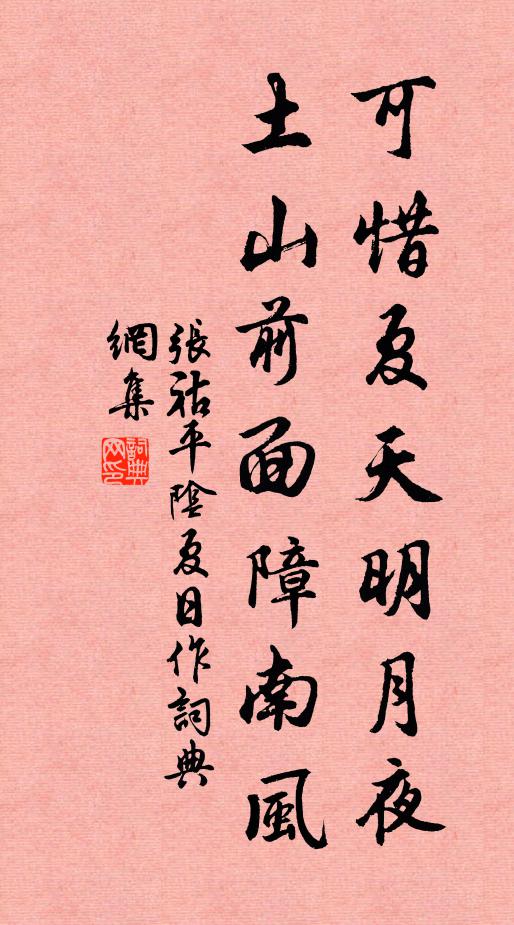 可惜夏天明月夜
土山前面障南風
張祜平陰夏日作詞典
網集
詞典
网印